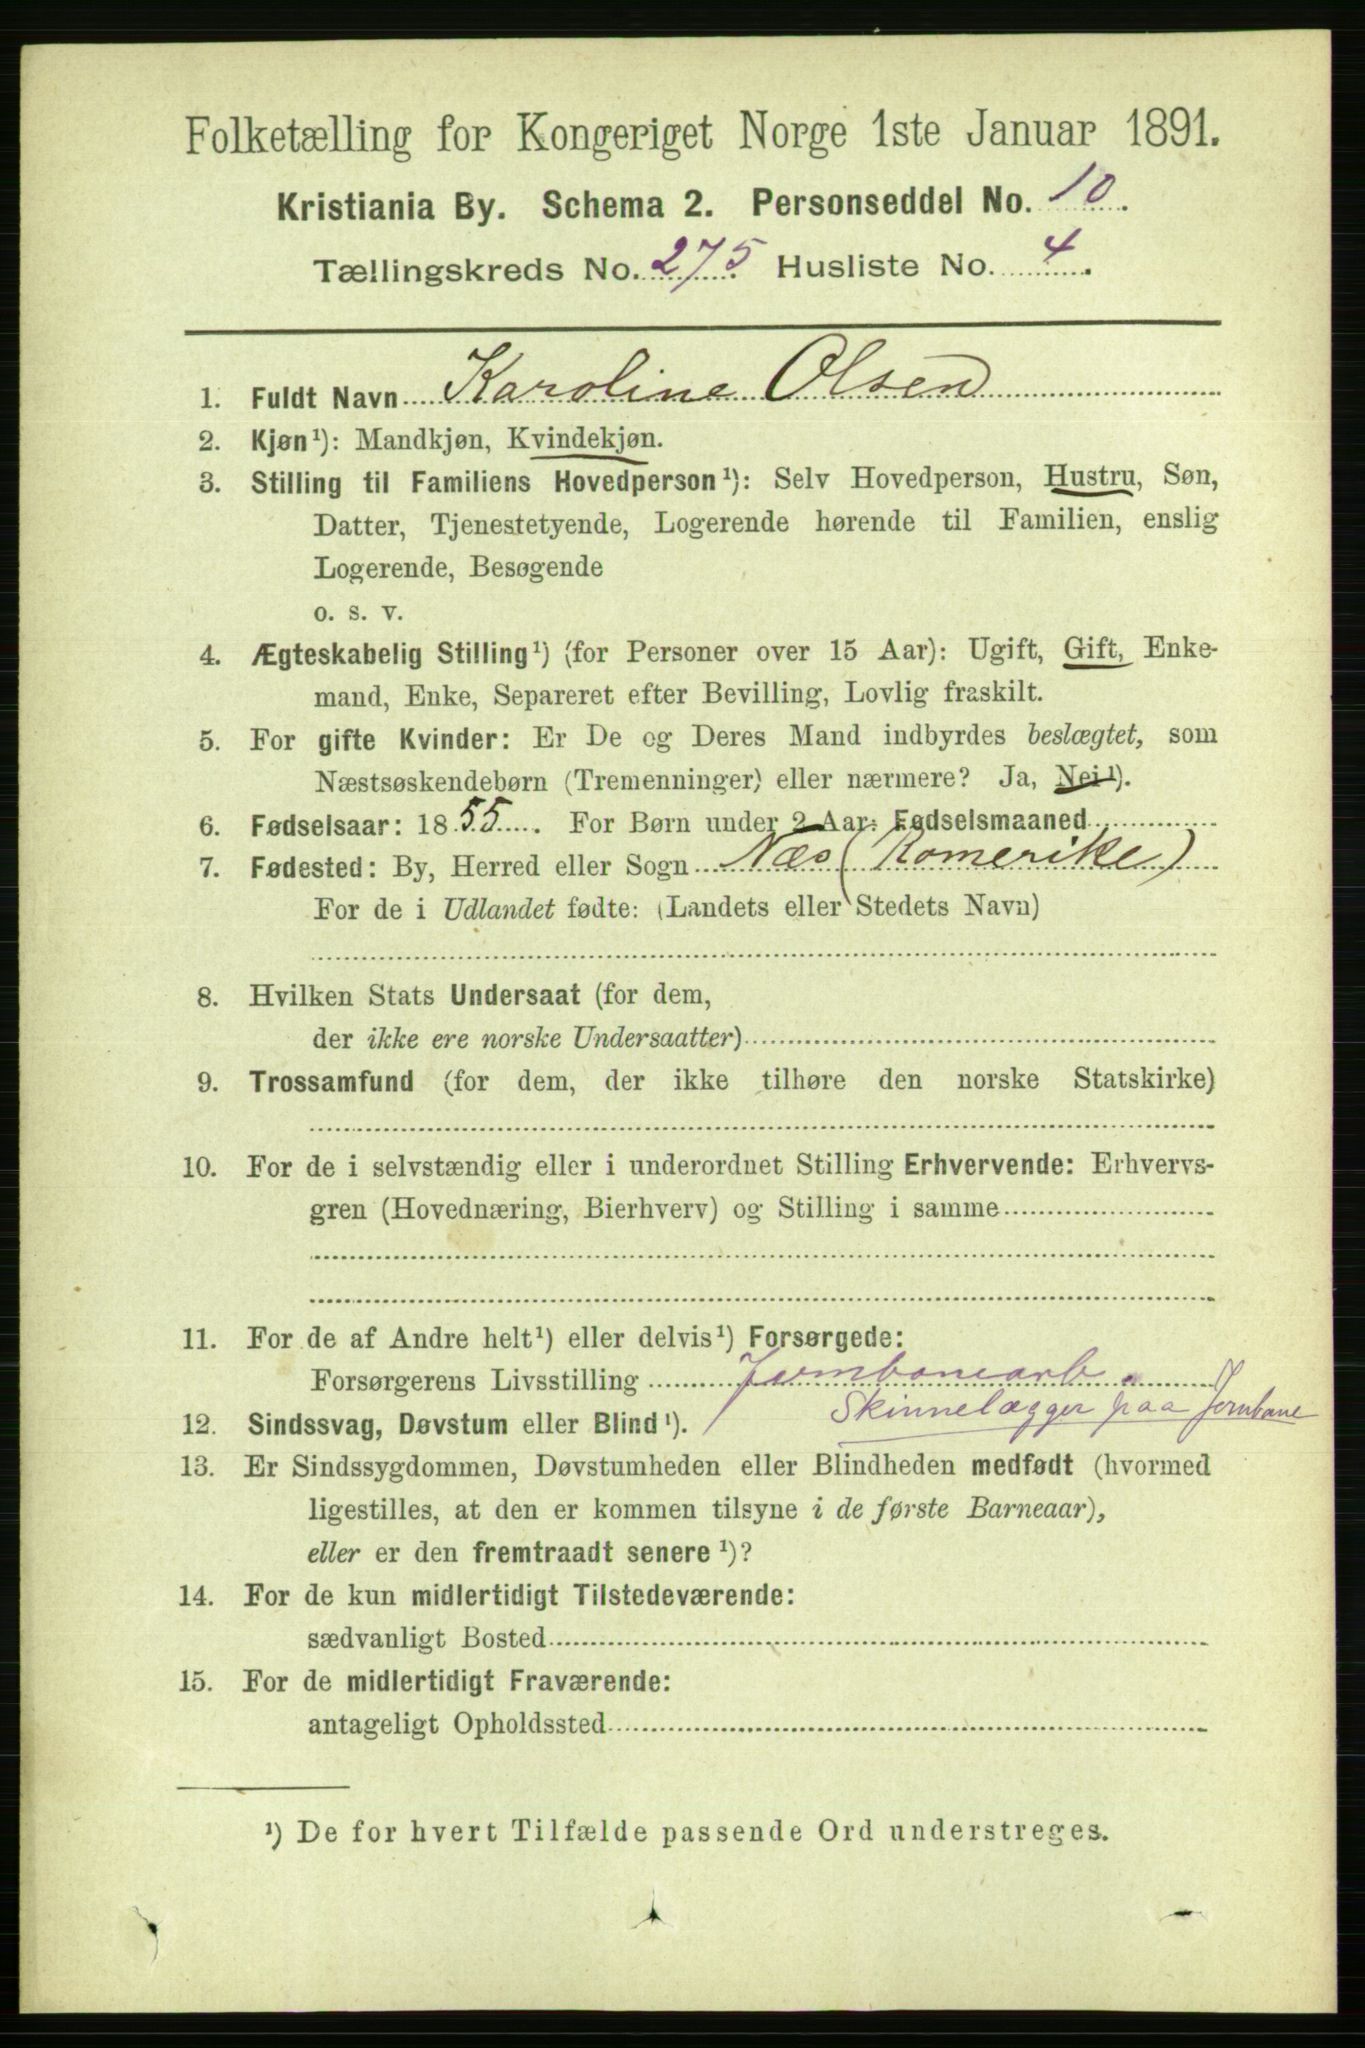 Folketælling for Kongeriget Norge 1ste Januar 1891.
Kristiania By. Schema 2. Personseddel No. 10.
Tællingskreds No. 275. Husliste No. 4.
1. Fuldt Navn Karoline Olsen
2. Kjøn¹): Mandkjøn, Kvindekjøn.
3. Stilling til Familiens Hovedperson¹): Selv Hovedperson, Hustru, Søn,
Datter, Tjenestetyende, Logerende hørende til Familien, enslig
Logerende, Besøgende
o. s. v.
4. Ægteskabelig Stilling¹) (for Personer over 15 Aar): Ugift, Gift, Enke-
mand, Enke, Separeret efter Bevilling, Lovlig fraskilt.
5. For gifte Kvinder: Er De og Deres Mand indbyrdes beslægtet, som
Næstsøskendebørn (Tremenninger) eller nærmere? Ja, Nei¹).
6. Fødselsaar: 1855. For Børn under 2 Aar: Fødselsmaaned
7. Fødested: By, Herred eller Sogn Næs (Romerike)
For de i Udlandet fødte: (Landets eller Stedets Navn)
8. Hvilken Stats Undersaat (for dem,
der ikke ere norske Undersaatter)
9. Trossamfund (for dem, der ikke tilhøre den norske Statskirke)
10. For de i selvstændig eller i underordnet Stilling Erhvervende: Erhvervs-
gren (Hovednæring, Bierhverv) og Stilling i samme
11. For de af Andre helt¹) eller delvis¹) Forsørgede:
Forsørgerens Livsstilling Jernbanearb.
Skinnelægger paa Jernbane
12. Sindssvag, Døvstum eller Blind¹).
13. Er Sindssygdommen, Døvstumheden eller Blindheden medfødt (hvormed
ligestilles, at den er kommen tilsyne i de første Barneaar),
eller er den fremtraadt senere¹)?
14. For de kun midlertidigt Tilstedeværende:
sædvanligt Bosted
15. For de midlertidigt Fraværende:
antageligt Opholdssted
¹) De for hvert Tilfælde passende Ord understreges.